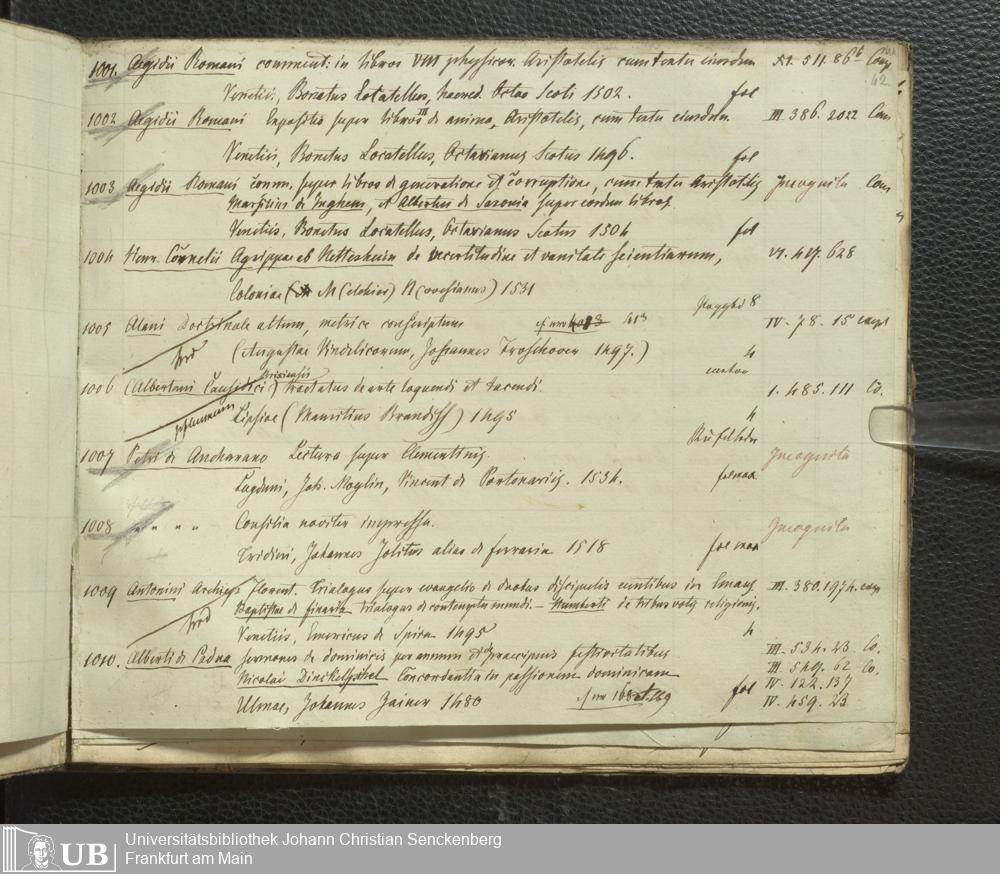 1001. Aegidii Romani comment: in libros VIII physicor. Aristotelis cum textu eiusdem XI. 511. 86
42
Venetiis, Bonetus Locatellus, haered. Octav Scoti 1502. fol
1002 Aegidii Romani Expositio super libros III de anima, Aristotelis, cum textu eiusdem. III. 386. 2022 Com
Venetiis, Bonetus Locatellus, Octavianus Scotus 1496. fol
1003 Aegidii Romani comm. super libros de generatione et corruptione, cum textu Aristotelis Incognita Com
Marsilius de Inghem, et Albertus de Saxonia super eosdem libros
Venetiis, Bonetus Locatellus, Octavianus Scotus 1504 fol
1004 Henr. Cornelii Agrippae ab Nettesheim de incertitudine et vanitate scientiarum, VI. 417. 628
Coloniae M(elchior) N(ovesianus) 1531 8
1005 Alani Doctrinale altum, metrice conscriptum cf nro 613 IV. 78. 15
(Augustae Vindelicorum, Johannes Froschover 1497.) 4
1006 (Albertani Causidici Brixiensis) tractatus de arte loquendi et tacendi. I. 485. 111 Co.
Lipsiae (Mauritius Brandiss) 1495 4
1007 Petri de Ancharano Lectura super Clementinis. Incognita
Lugduni, Joh. Moylin, Vincent de Portonariis. 1534. fol max
1008 " " " " Consilia noviter impressa. Incognita
Tridini, Johannes Jolitus alias de ferraria 1518 fol max
1009 Antonini Archiep Florent. Trialogus super evangelio de duobus discipulis euntibus in Emaus. III. 380. 1974.
Baptistae de finaria trialogus de contemptu mundi. — Humberti de tribus votis religionis.
Venetiis, Emericus de Spira 1495 4
1010. Alberti de Padua sermones de dominicis per annum et de praecipuis festivitatibus III. 534. 23 Co.
Nicolai Dinckelspühel Concordantia in passionem dominicam III. 549. 62 Co.
IV. 122. 137
Ulmae, Johannes Zainer 1480 cf nr 168 et 169 fol IV. 459. 23
UB Universitätsbibliothek Johann Christian Senckenberg
Frankfurt am Main